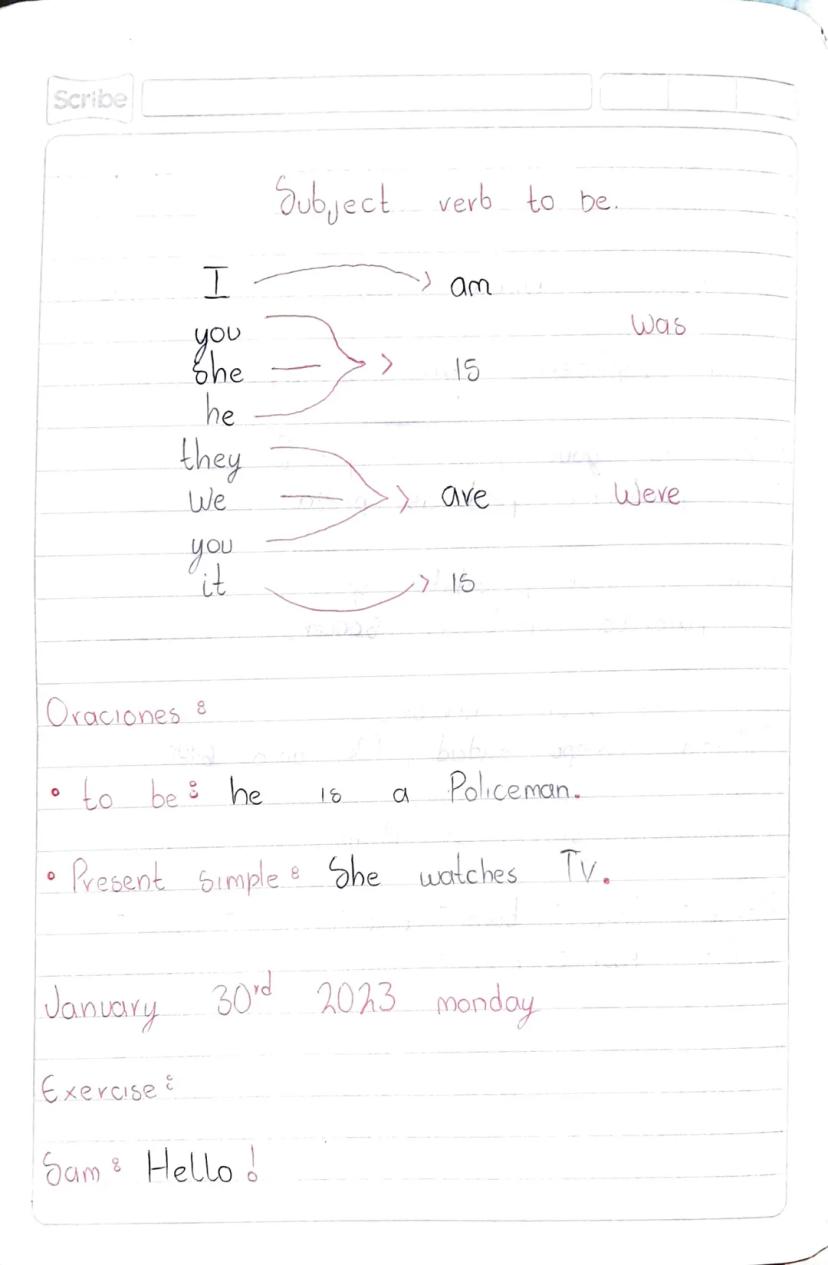 Scribe
Subject verb to be.
I am
you was
She is
he
they
we are were
you
it is
Oraciones:
• to be: he is a Policeman.
• Present simple: She watches Tv.
January 30rd 2023 monday
Exercise:
Sam: Hello!